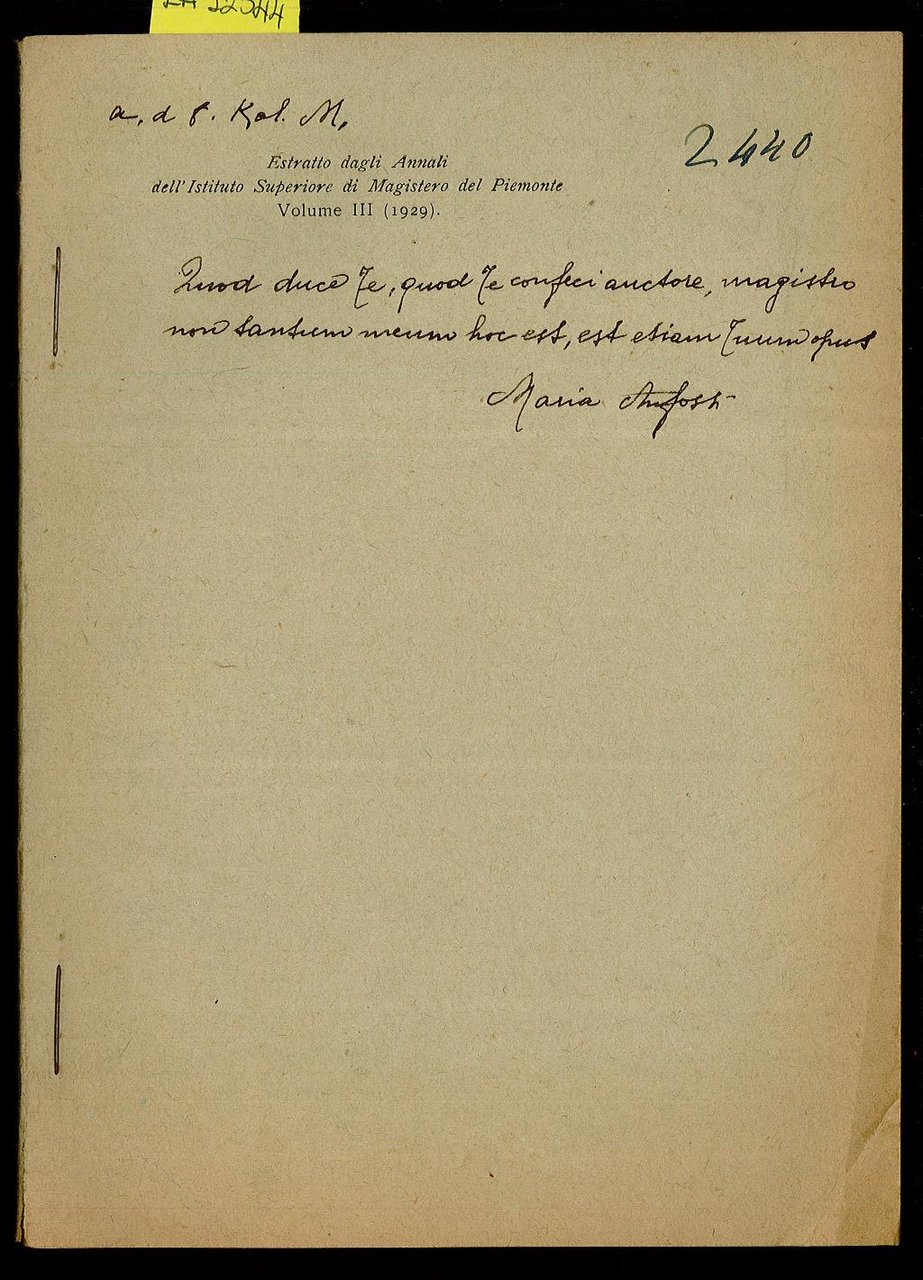 a. d 8. Kal. M.
2440
Estratto dagli Annali
dell'Istituto Superiore di Magistero del Piemonte
Volume III (1929).
Quod duce Te, quod Te confeci auctore, magistro
non tantum meum hoc est, est etiam Tuum opus
Maria Anfossi